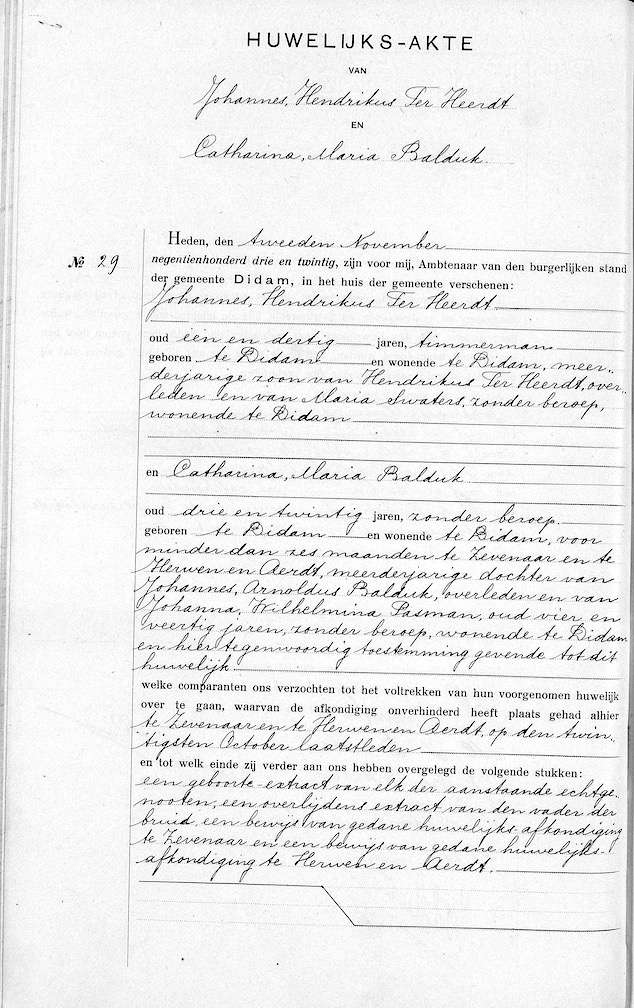 HUWELIJKS-AKTE
VAN
Johannes, Hendrikus Ter Heerdt
EN
Catharina, Maria Balduk.
Heden, den tweeden November
№ 29
negentienhonderd drie en twintig, zijn voor mij, Ambtenaar van den burgerlijken stand
der gemeente Didam, in het huis der gemeente verschenen:
Johannes, Hendrikus Ter Heerdt
oud een en dertig jaren, timmerman
geboren te Didam en wonende te Didam, meer„
derjarige zoon van Hendrikus Ter Heerdt, over„
leden en van Maria Swaters, zonder beroep,
wonende te Didam
en Catharina, Maria Balduk
oud drie en twintig jaren, zonder beroep.
geboren te Didam en wonende te Didam, voor
minder dan zes maanden te Zevenaar en te
Herwen en Aerdt, meerderjarige dochter van
Johannes, Arnoldus Balduk, overleden en van
Johanna, Wilhelmina Pasman, oud vier en
veertig jaren, zonder beroep, wonende te Didam
en hier tegenwoordig toestemming gevende tot dit
huwelijk
welke comparanten ons verzochten tot het voltrekken van hun voorgenomen huwelijk
over te gaan, waarvan de afkondiging onverhinderd heeft plaats gehad alhier
te Zevenaar en te Herwen en Aerdt, op den twin„
tigsten October laatstleden
en tot welk einde zij verder aan ons hebben overgelegd de volgende stukken:
een geboorte-extract van elk der aanstaande echtge„
nooten, een overlijdens extract van den vader der
bruid, een bewijs van gedane huwelijks-afkondiging
te Zevenaar en een bewijs van gedane huwelijks-
afkondiging te Herwen en Aerdt.